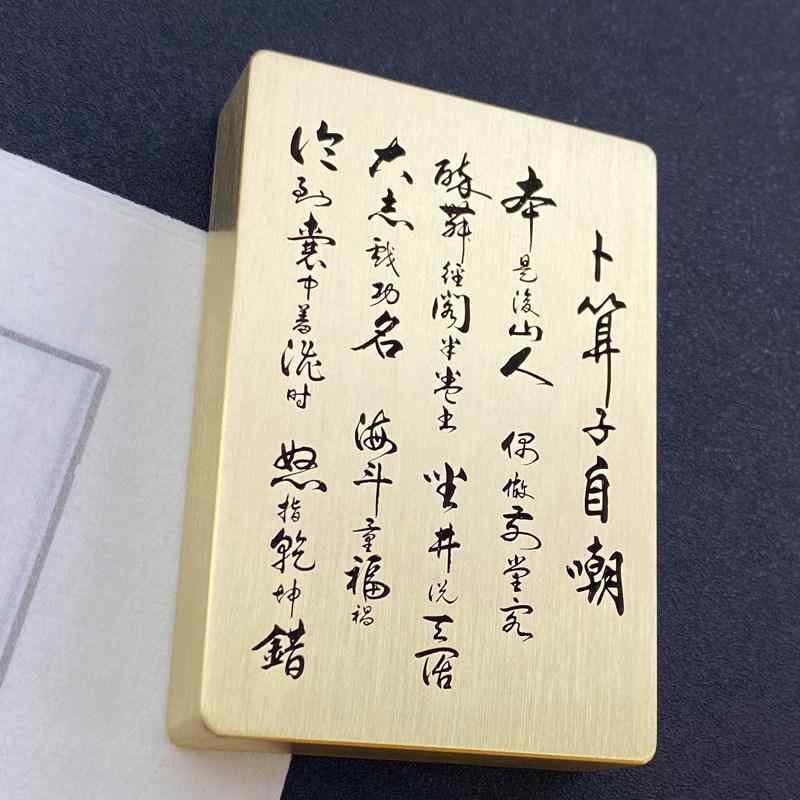 卜算子自嘲
本是後山人 偶做前堂客
醉舞經閣半卷书 坐井说天闊
大志戏功名 海斗量福禍
论到囊中羞涩时 怒指乾坤錯